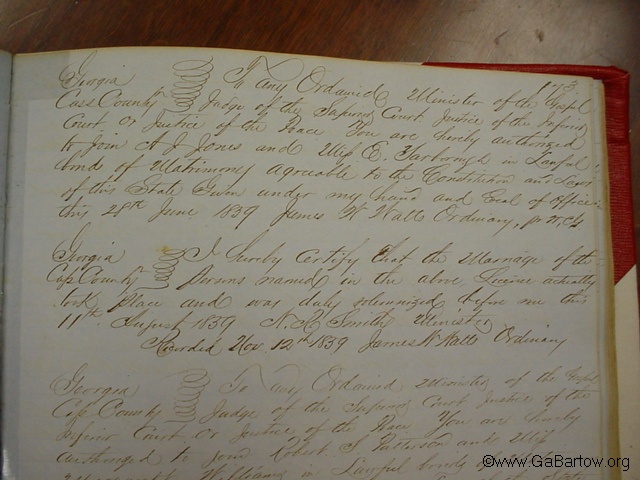 Georgia To any Ordained Minister of the Gospel
Cass County Judge of the Superior Court Justice of the Inferior
Court or Justice of the Peace You are hereby authorized
to join A J Jones and Miss E. Yarbrough in Lawful
bonds of Matrimony agreeable to the Constitution and Laws
of this State Given under my hand and Seal of Office
this 28th June 1839 James W Watts Ordinary,
Georgia I hereby Certify that the Marriage of the
Cass County persons named in the above License actually
took place and was duly solemnized before me this
11th August 1839 N. R Smith Minister
Recorded Nov 12th 1839 James W Watts Ordinary
Georgia To any Ordained Minister of the Gospel
Cass County Judge of the Superior Court Justice of the
Inferior Court or Justice of the Peace You are hereby
authorized to join Robert S Patterson and Miss
Williams in Lawful bonds of
©www.GaBartow.org